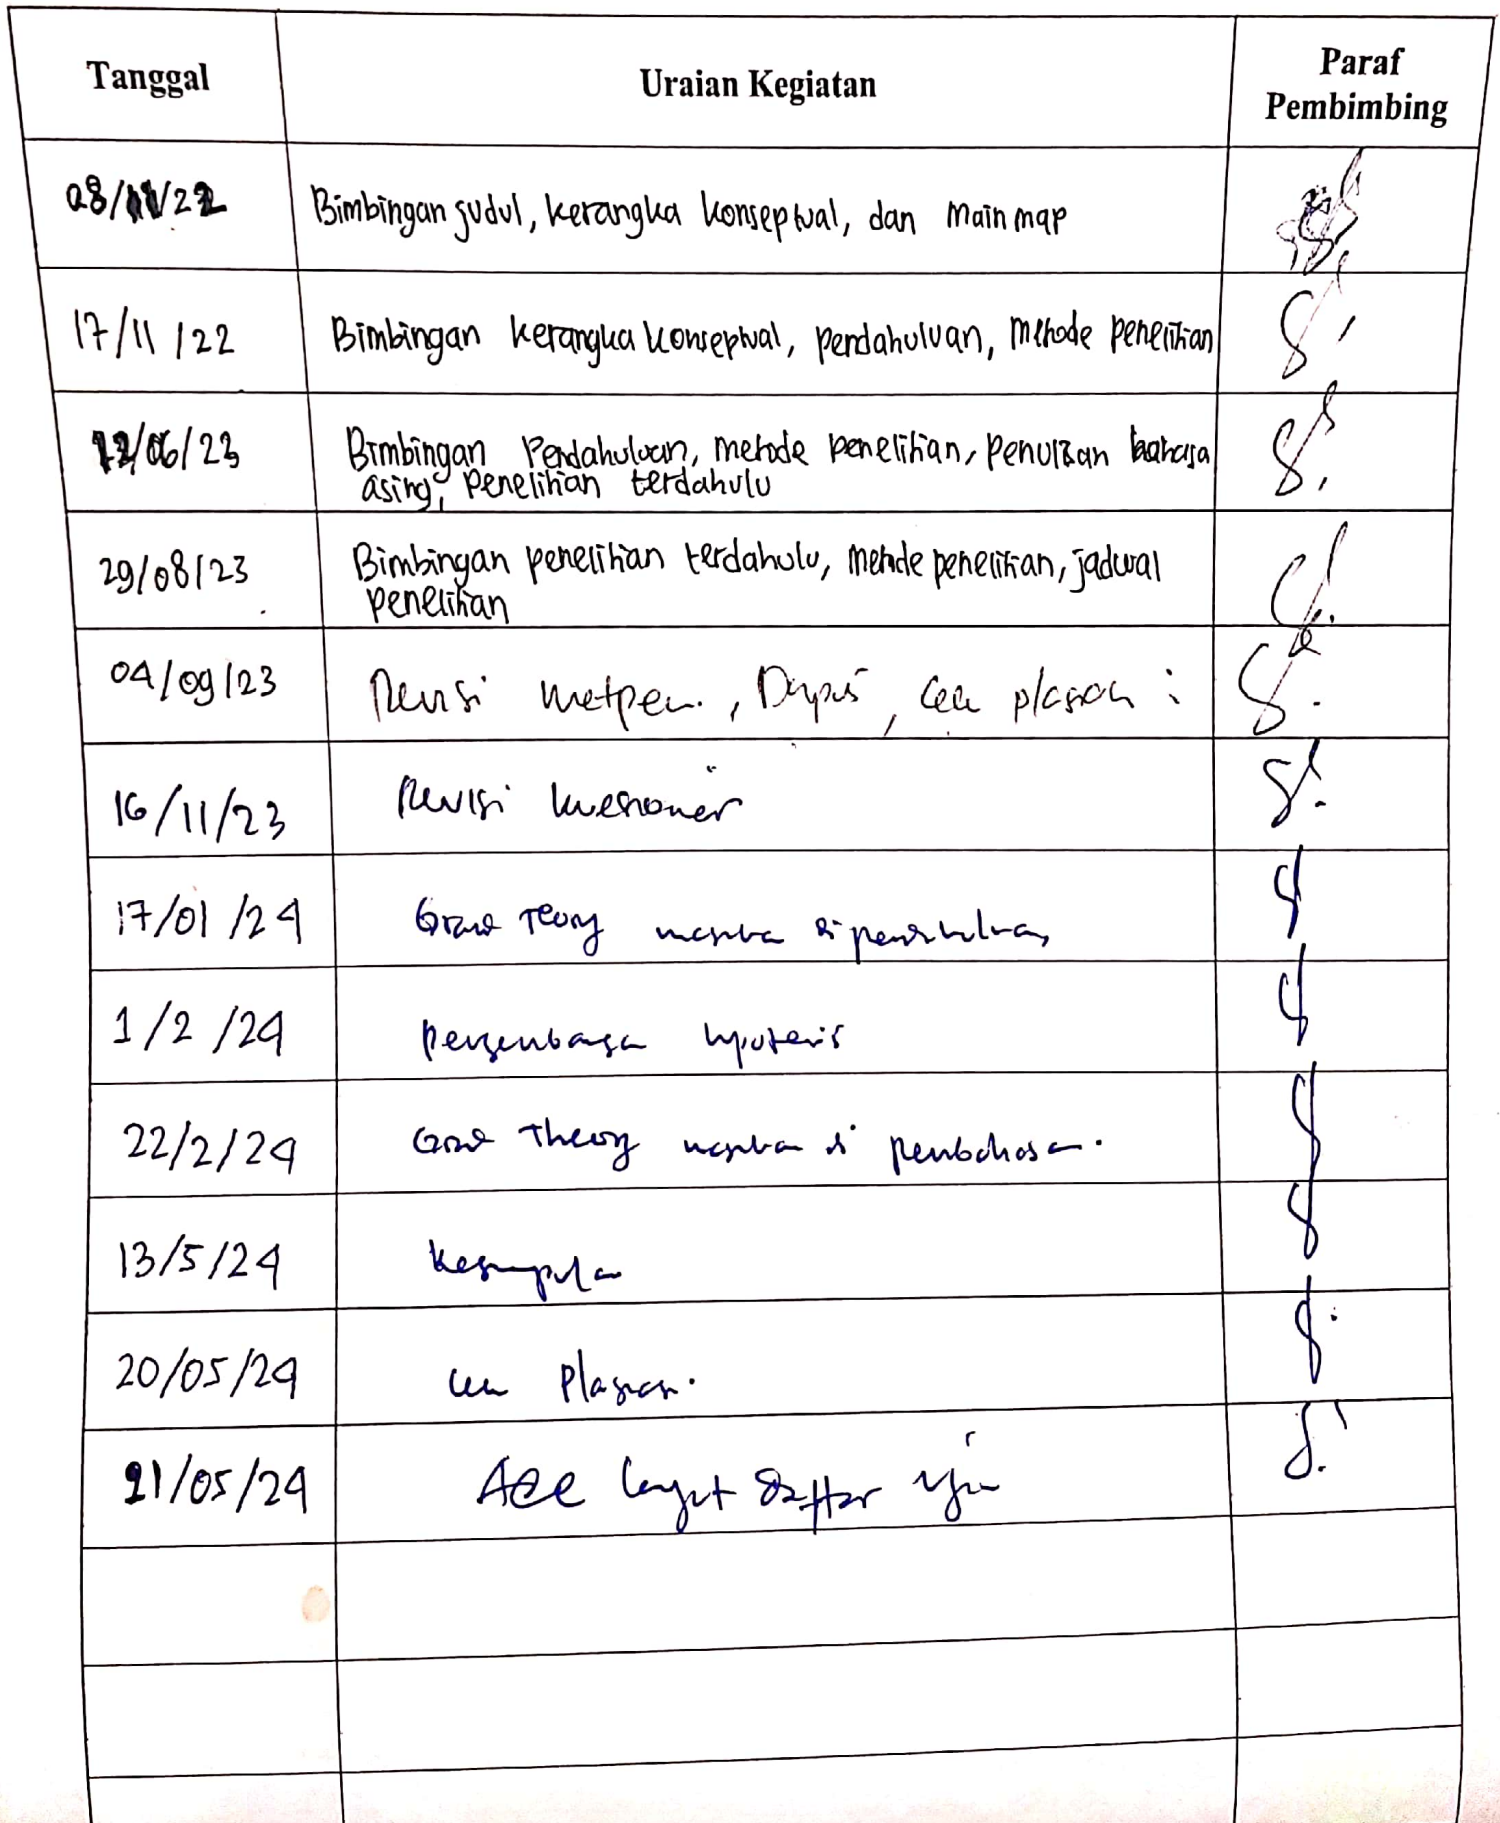 Tanggal
Uraian Kegiatan
Paraf
Pembimbing
08/11/22 Bimbingan judul, kerangka konseptual, dan main map
17/11/22 Bimbingan kerangka konseptual, pendahuluan, metode penelitian
12/06/23 Bimbingan Pendahuluan, metode penelitian, penulisan bahasa
asing, penelitian terdahulu
29/08/23 Bimbingan penelitian terdahulu, metode penelitian, jadwal
penelitian
04/09/23 Revisi metpen., Dapus, cek plagiasi
16/11/23 Revisi kuesioner
17/01/24 Grand Teory di pendahuluan
1/2/24 pengembangan hipotesis
22/2/24 Grand Theory di pembahasan.
13/5/24 kesimpulan
20/05/24 cek Plagiasi.
21/05/24 Acc lanjut daftar ujian